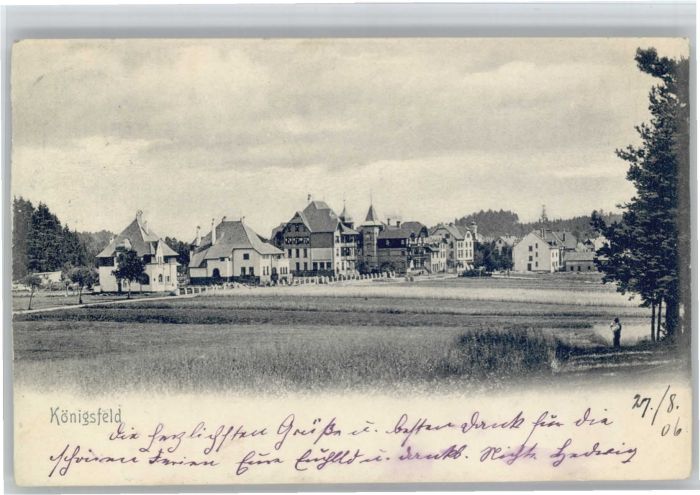 Königsfeld
27./8. 06
die herzlichsten Grüße u. besten Dank für die
schönen Ferien Eure u. dankb. Nichte Hedwig